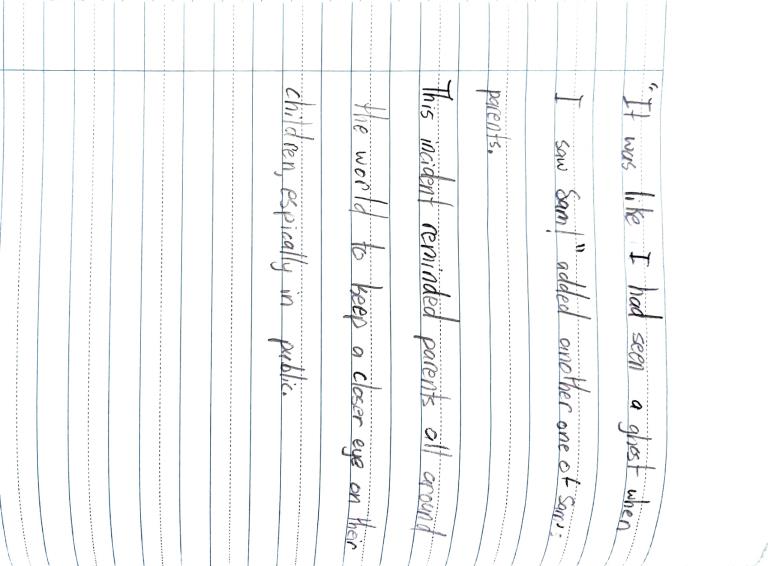 "It was like I had seen a ghost when
I saw Sam!" added another one of Sam's
parents.
This incident reminded parents all around
the world to keep a closer eye on their
children, espically in public.